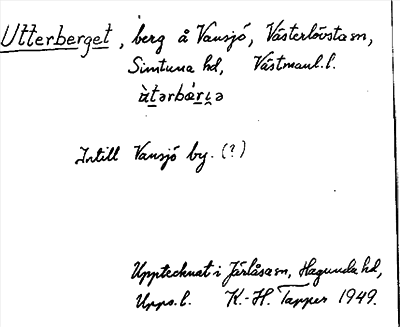 Utterberget, berg å Vansjö, Västerlövsta sn,
Simtuna hd, Västmanl. l.
ùtərbær̡ı̯ə
Intill Vansjö by. (?)
Upptecknat i Järlåsa sn, Hagunda hd,
Upps. l. K.-H. Tapper 1949.